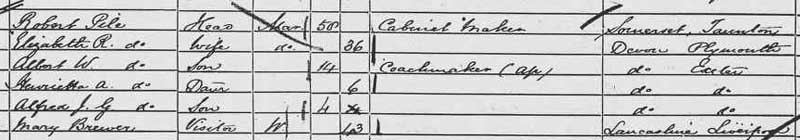 Robert Pile Head Mar 58 Cabinet Maker Somerset, Taunton
Elizabeth R. do Wife do 36 Devon Plymouth
Albert W. do Son 14 Coachmaker (Ap) do Exeter
Henrietta A. do Daur 6 do do
Alfred J. G do Son 4 do do
Mary Brewer Visitor W 63 Lancashire Liverpool